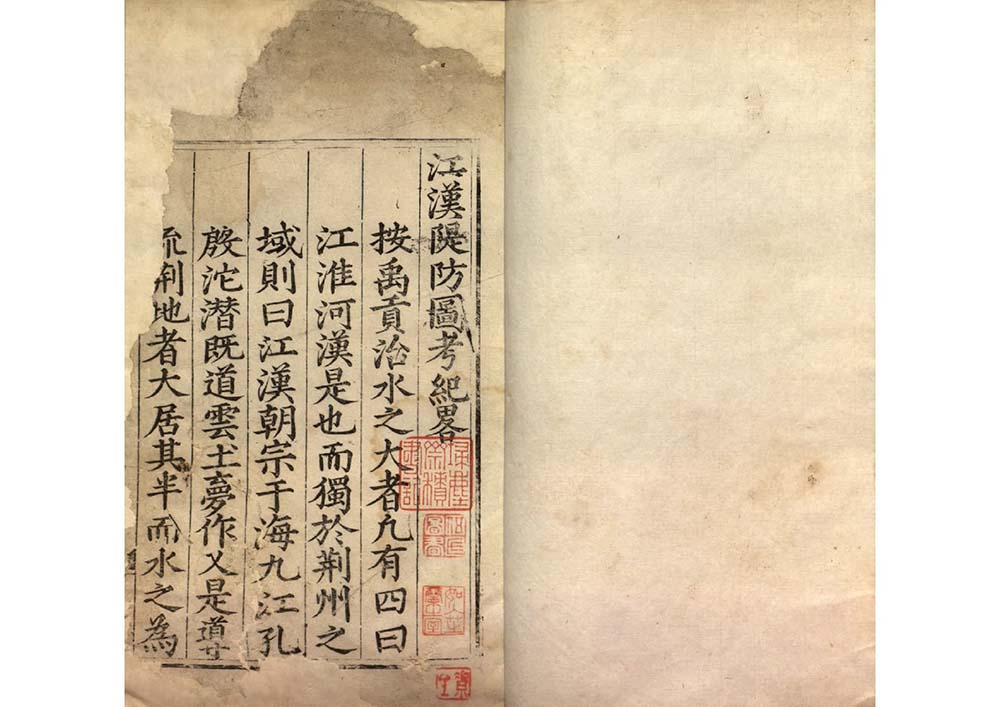 江漢隄防圖考紀畧
按禹貢治水之大者凢有四曰
江淮河漢是也而獨於荆州之
域則曰江漢朝宗于海九江孔
殷沱潜既道雲土夢作乂是導
流荆地者大居其半而水之為
埽塵齋積書記